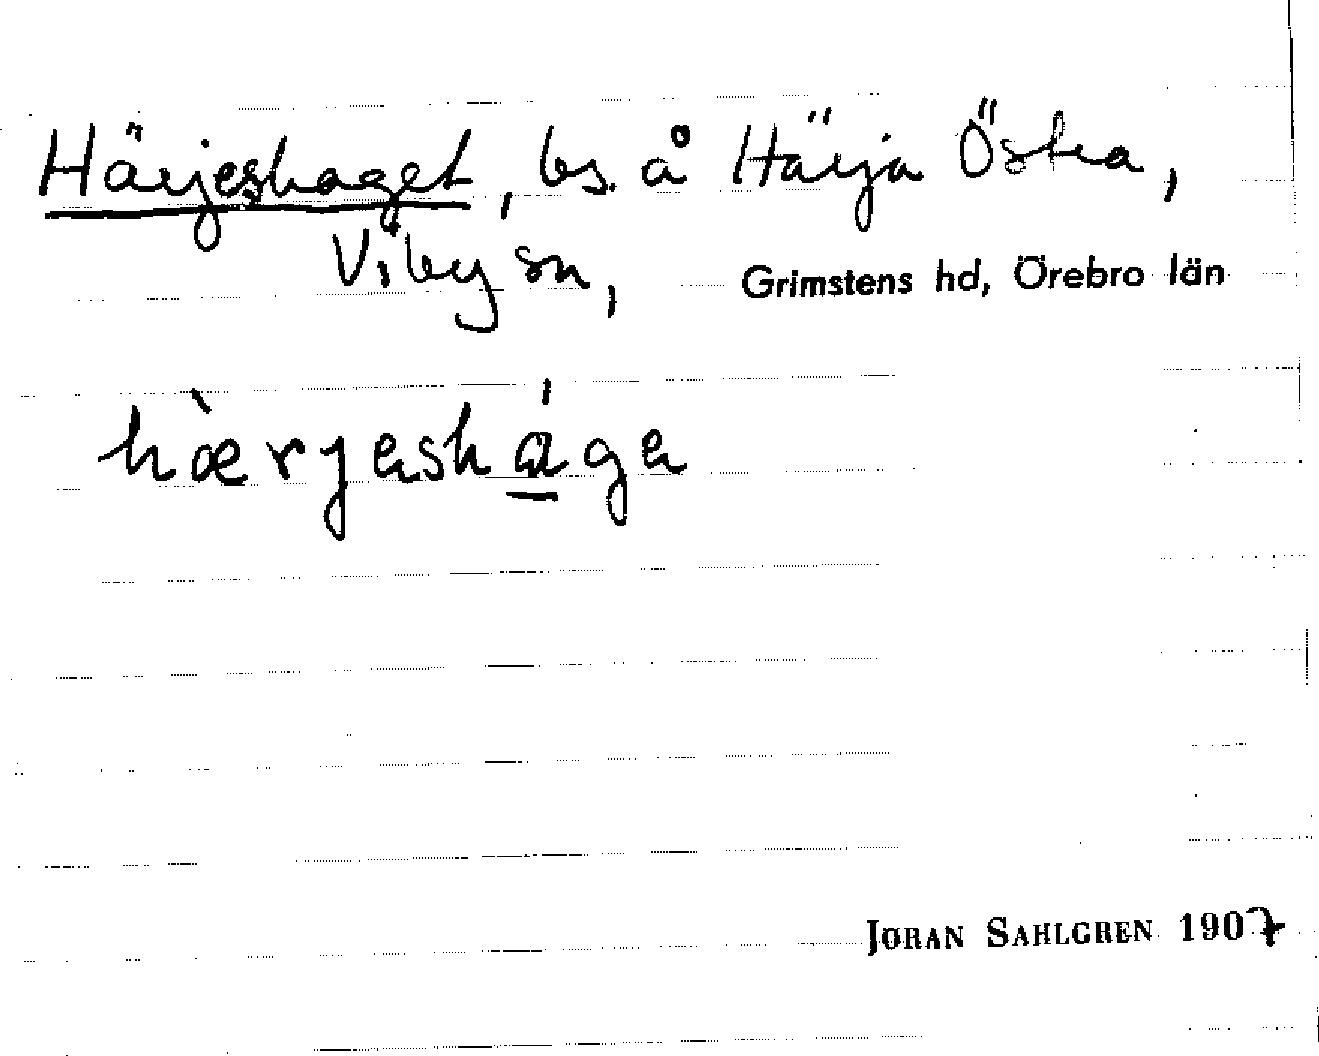 Härjeshaget, bs. å Härja Östra,
Viby sn, Grimstens hd, Örebro län
hæ̀rjesháge
JÖRAN SAHLGREN 1907